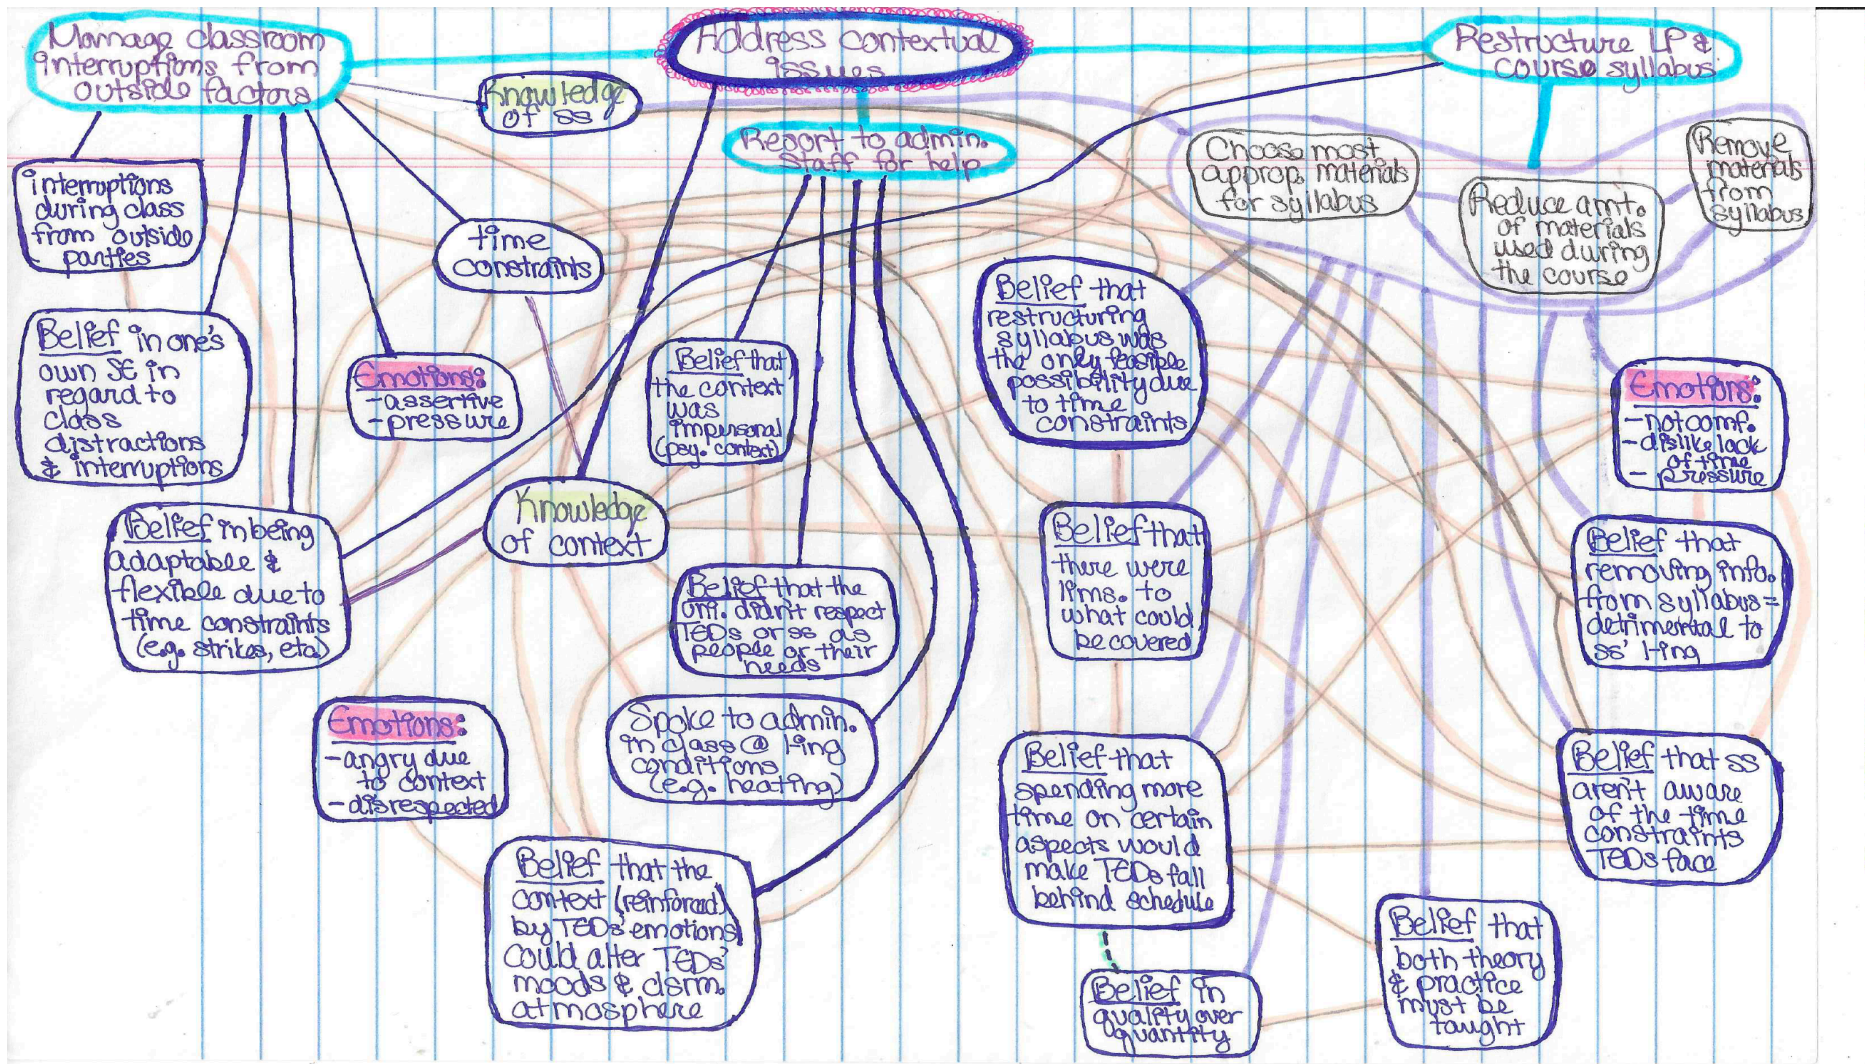 Manage classroom
interruptions from
outside factors
Address contextual
issues
Restructure LP &
course syllabus
Knowledge
of ss
Report to admin.
staff for help
Choose most
approp. materials
for syllabus
Reduce amt.
of materials
used during
the course
Remove
materials
from
syllabus
interruptions
during class
from outside
parties
time
constraints
Belief in one's
own SE in
regard to
class
distractions
& interruptions
Emotions:
-assertive
-pressure
Belief that
the context
was
impersonal
(psy. context)
Belief that
restructuring
syllabus was
the only feasible
possibility due
to time
constraints
Emotions:
-not comf.
-dislike lack
of time
-pressure
Belief in being
adaptable &
flexible due to
time constraints
(e.g. strikes, etc.)
Knowledge
of context
Belief that the
uni. didn't respect
TEDs or ss as
people or their
needs
Belief that
there were
lims. to
what could
be covered
Belief that
removing info.
from syllabus =
detrimental to
ss' l-ing
Emotions:
-angry due
to context
-disrespected
Spoke to admin.
in class @ l-ing
conditions
(e.g. heating)
Belief that
spending more
time on certain
aspects would
make TEDs fall
behind schedule
Belief that ss
aren't aware
of the time
constraints
TEDs face
Belief that the
context (reinforced)
by TEDs' emotions
could alter TEDs'
moods & clsrm.
atmosphere
Belief in
quality over
quantity
Belief that
both theory
& practice
must be
taught